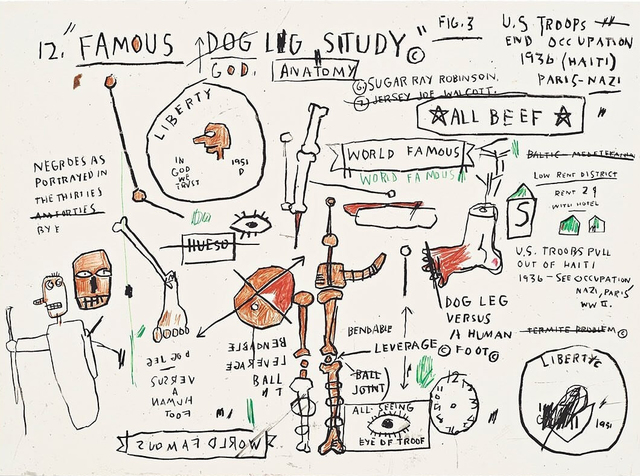 12. "FAMOUS DOG LEG STUDY" ©
GOD.
ANATOMY
FIG. 3
U.S TROOPS
END OCCUPATION
1936 (HAITI)
PARIS-NAZI
⑥ SUGAR RAY ROBINSON.
⑦ JERSEY JOE WALCOTT.
☆ALL BEEF☆ "
LIBERTY
IN
GOD
WE
TRUST
1951
D
WORLD FAMOUS
WORLD FAMOUS
LOW RENT DISTRICT
RENT 29
WITH HOTEL
S
NEGROES AS
PORTRAYED IN
THE THIRTIES
AN FORTIES
HUESO
U.S. TROOPS PULL
OUT OF HAITI
1936 - SEE OCCUPATION
NAZI, PARIS
WW II.
DOG LEG
VERSUS
A HUMAN
© FOOT ©
TERMITE PROBLEM ©
BENDABLE
LEVERAGE
BALL
JOINT)
BENDABLE
LEVERAGE
BALL
DOG LEG
VERSUS
A
HUMAN
FOOT
12
ALL-SEEING
EYE OF TROOF
WORLD FAMOUS
LIBERTY ©
1951